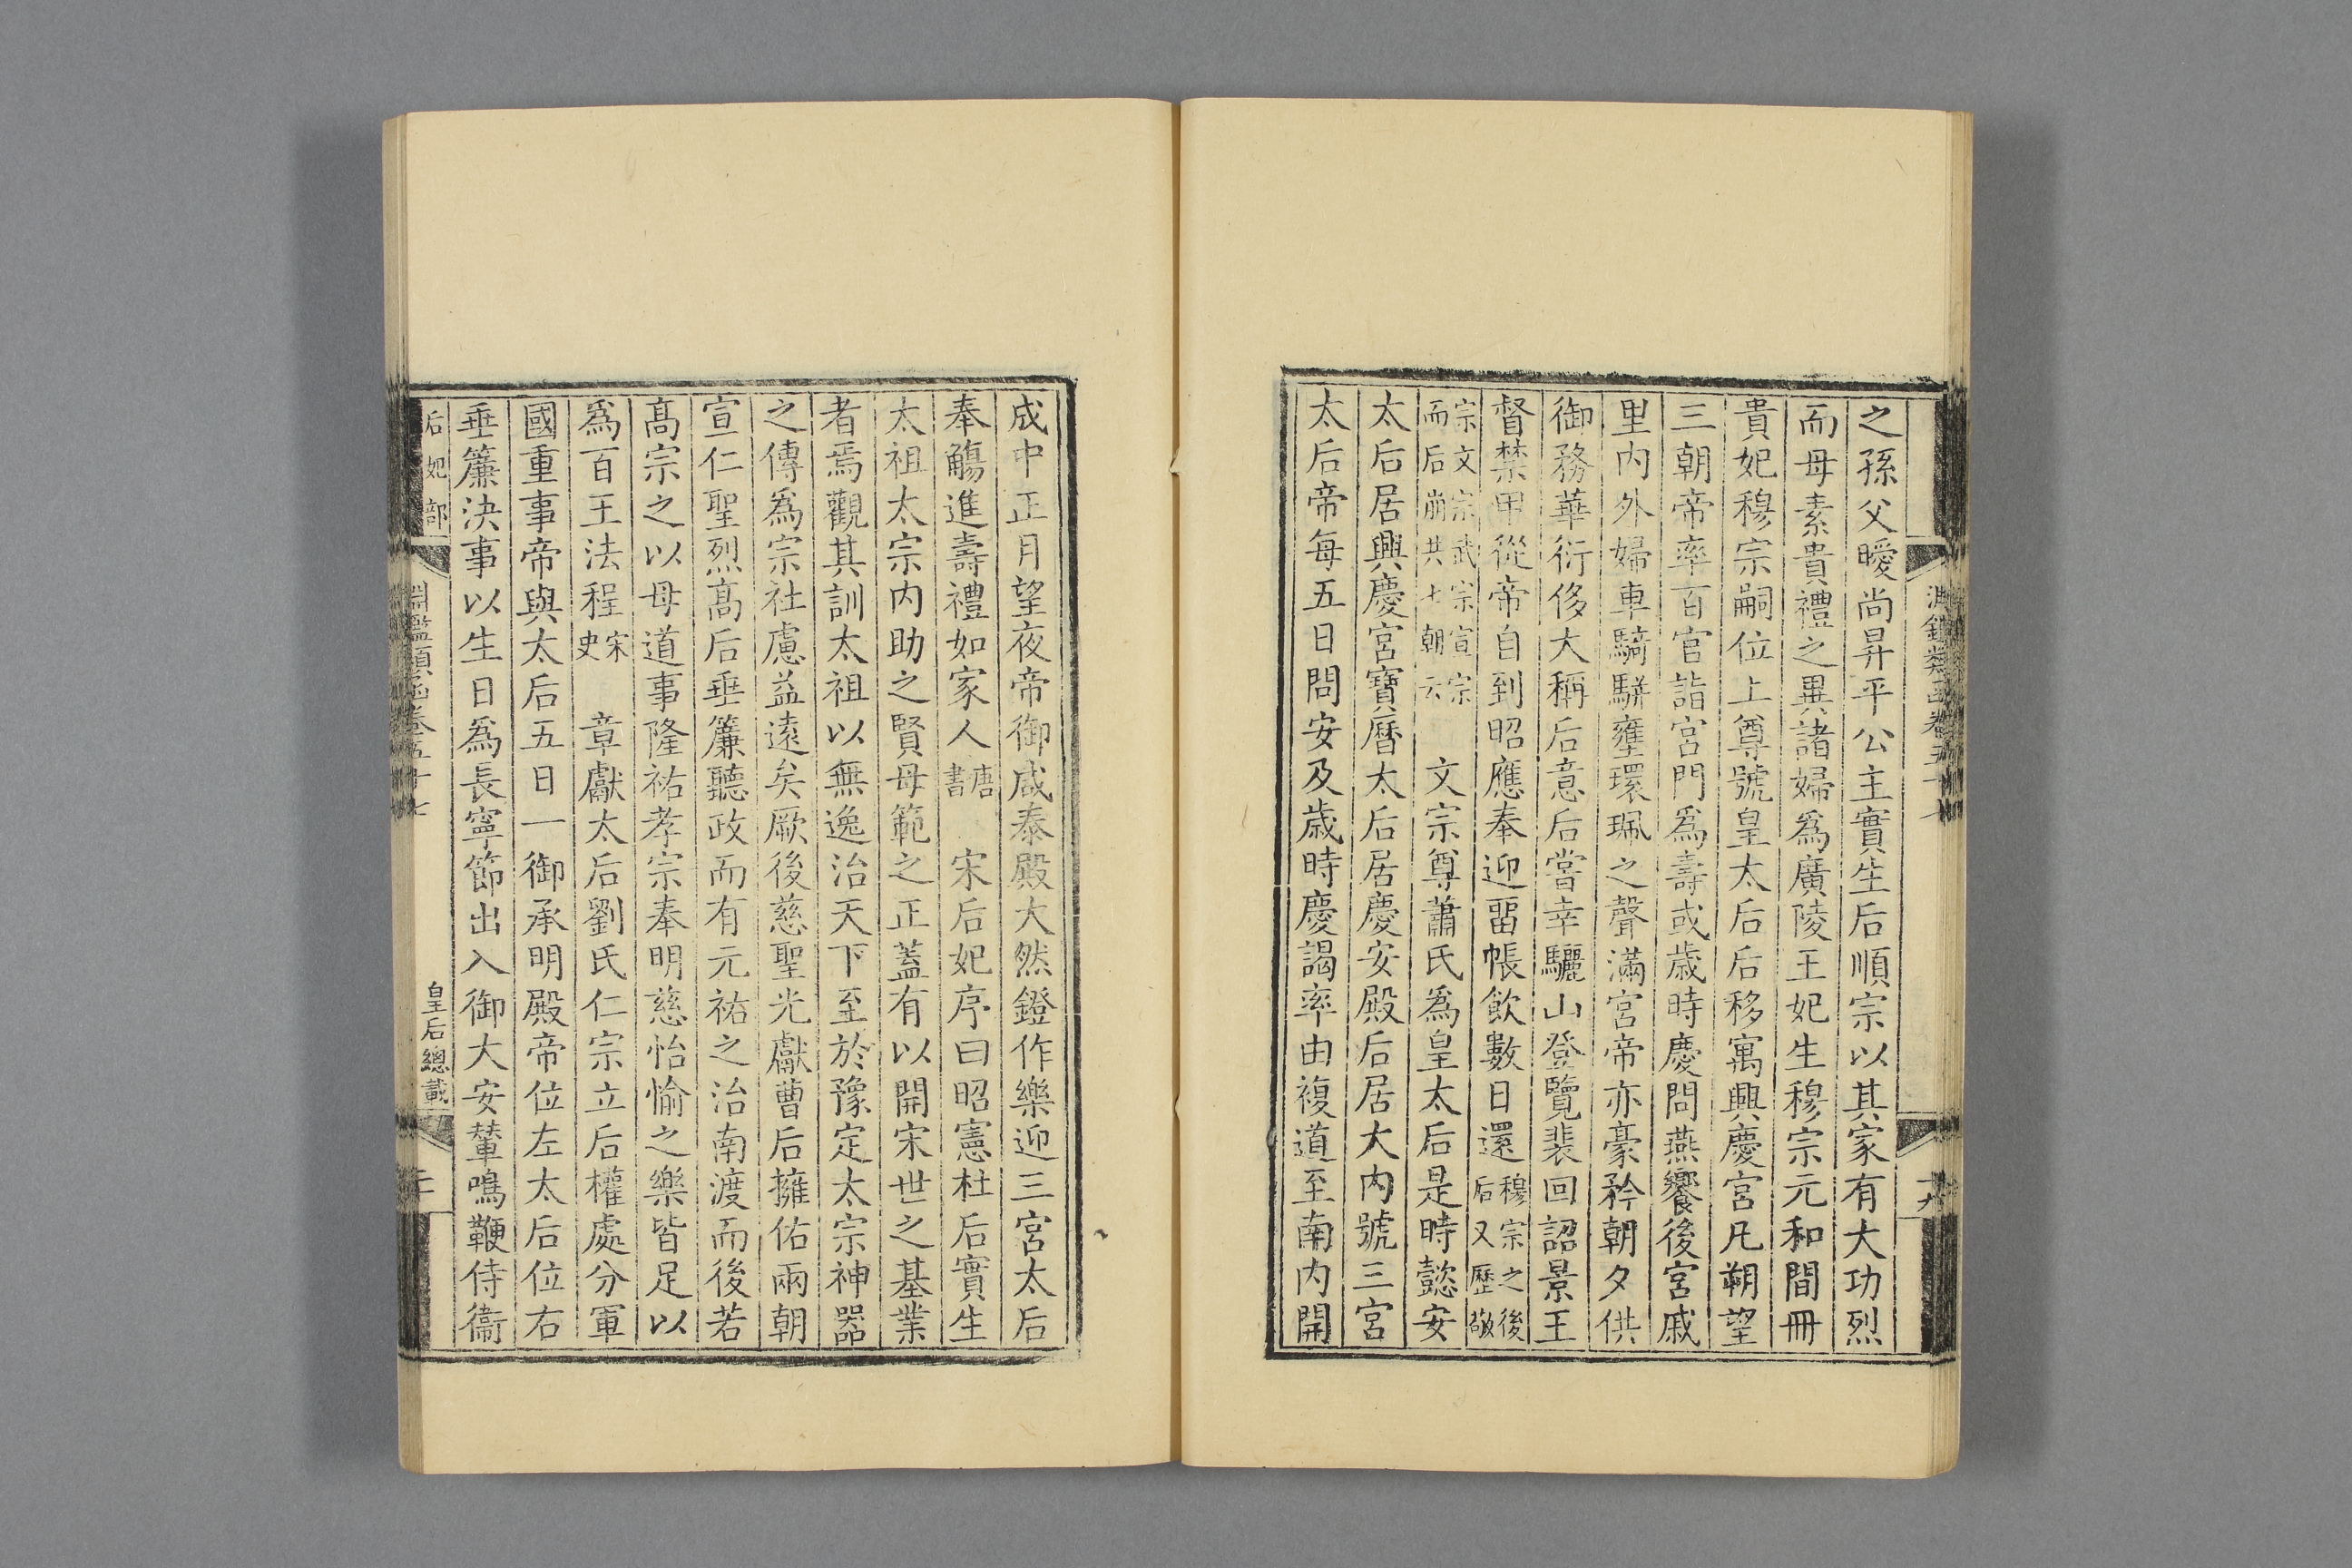 之孫父曖尚昇平公主實生后順宗以其家有大功烈
而母素貴禮之異諸婦為廣陵王妃生穆宗元和間冊
貴妃穆宗嗣位上尊號皇太后后移寓興慶宮凡朔望
三朝帝率百官詣宮門為壽或歲時慶問燕饗後宮戚
里內外婦車騎駢壅環珮之聲滿宮帝亦豪矜朝夕供
御務華衍侈大稱后意后嘗幸驪山登覽裴回詔景王
督禁甲從帝自到昭應奉迎畱帳飲數日還穆宗之後后又歷敬
宗文宗武宗宣宗而后崩共七朝云　文宗尊蕭氏為皇太后是時懿安
太后居興慶宮寶曆太后居慶安殿后居大內號三宮
太后帝每五日問安及歲時慶謁率由複道至南內開
成中正月望夜帝御咸泰殿大然鐙作樂迎三宮太后
奉觴進壽禮如家人唐書　宋后妃序曰昭憲杜后實生
太祖太宗內助之賢母範之正蓋有以開宋世之基業
者焉觀其訓太祖以無逸治天下至於豫定太宗神器
之傳為宗社慮益遠矣厥後慈聖光獻曹后擁佑兩朝
宣仁聖烈髙后垂簾聽政而有元祐之治南渡而後若
髙宗之以母道事隆祐孝宗奉明慈怡愉之樂皆足以
為百王法程宋史　章獻太后劉氏仁宗立后權處分軍
國重事帝與太后五日一御承明殿帝位左太后位右
垂簾決事以生日為長寧節出入御大安輦鳴鞭侍衞
后妃部　淵鑑類函卷五十七　皇后總載